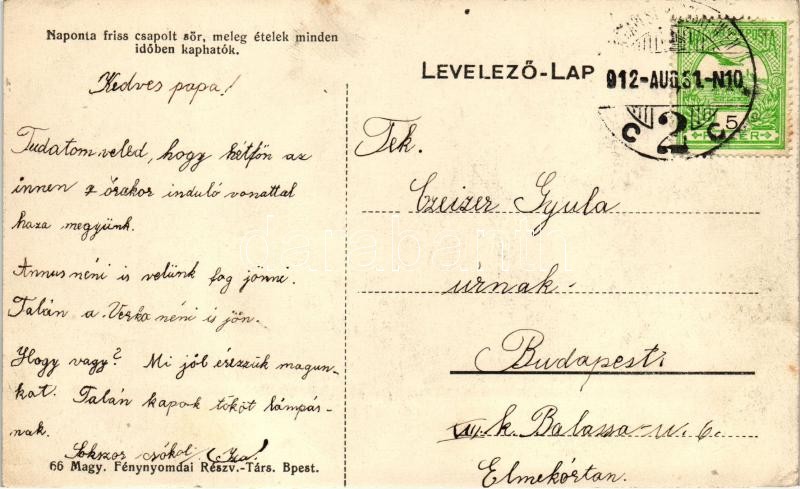 Naponta friss csapolt sör, meleg ételek minden
időben kaphatók.
Kedves papa!
Tudatom veled, hogy hétfőn az
innen órakor induló vonattal
haza megyünk.
Annus néni is velünk fog jönni.
Talán a Verka néni is jön.
Hogy vagy? Mi jól érezzük magun-
kat. Talán kapok tököt lámpás-
nak.
Sokszor csókol: Iza!
66 Magy. Fénynyomdai Részv.-Társ. Bpest.
LEVELEZŐ-LAP
912-AUG.31.-N10
C 2 C
5
Tek.
Czeizer Gyula
úrnak.
Budapest
k. Balassa-u. 6.
Elmekórtan.
darabanth